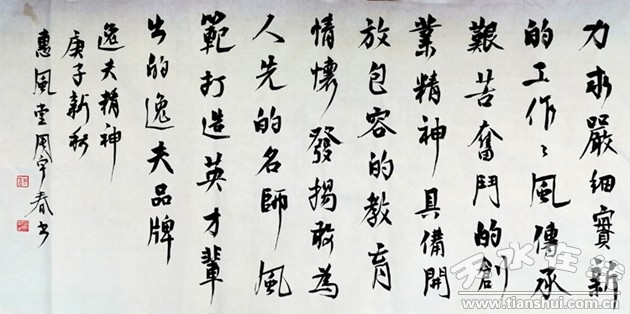 力求嚴細實新
的工作〻風傳承
艱苦奮鬥的創
業精神具備開
放包容的教育
情懷發揚敢為
人先的名師風
範打造英才輩
出的逸夫品牌
逸夫精神
庚子新秋
惠風堂周宇春书
天水在线
www.tianshui.com.cn